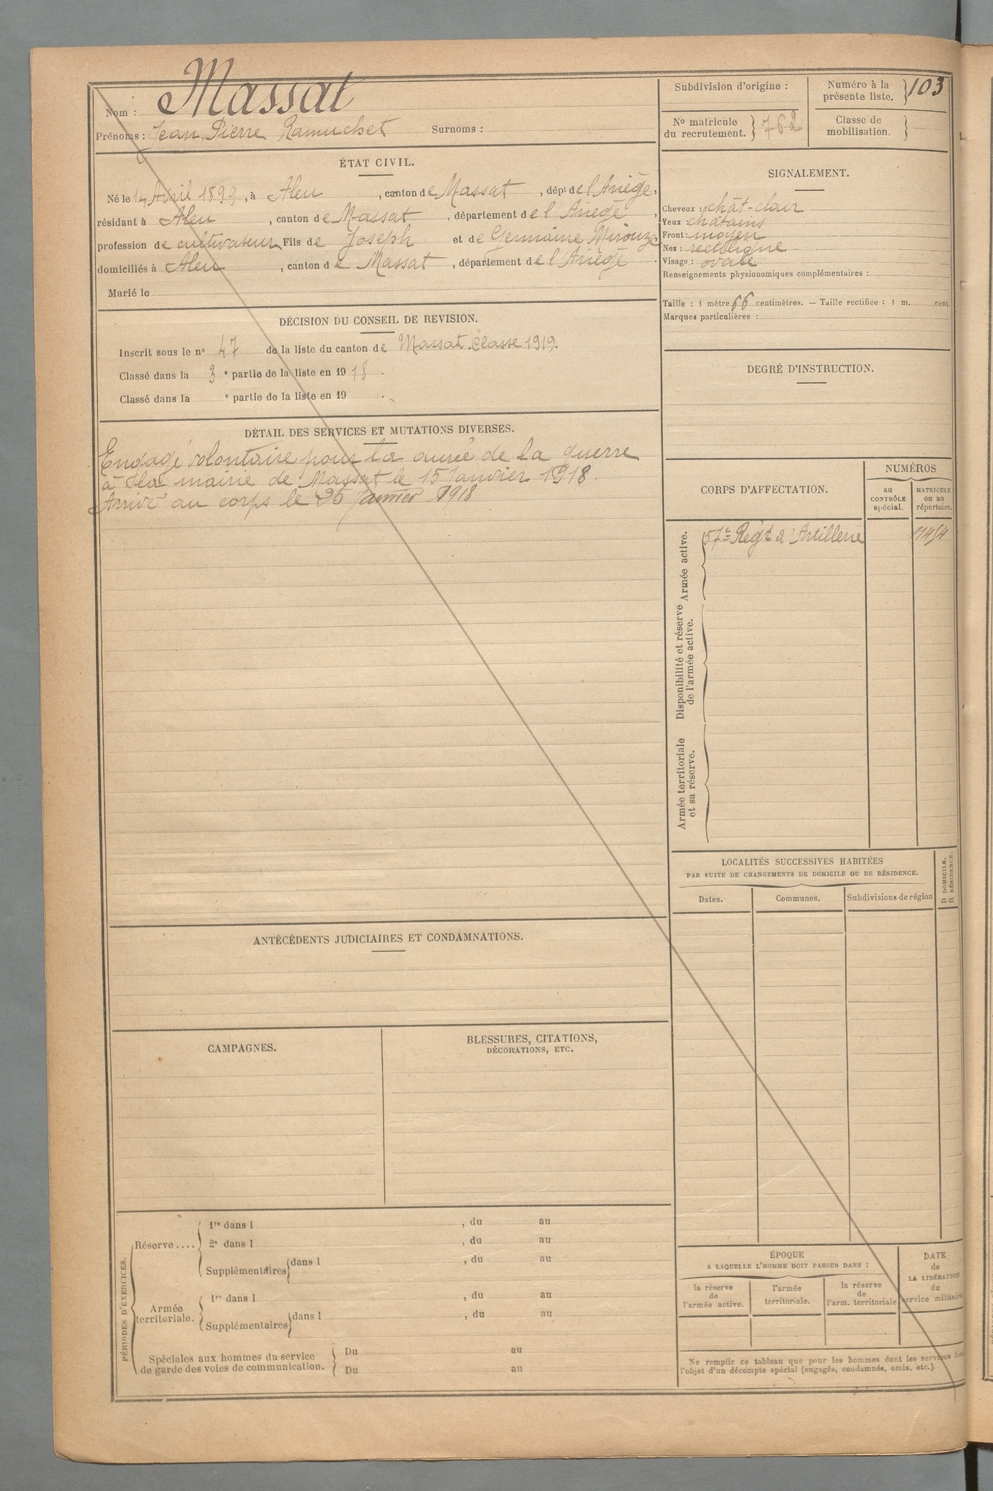 Nom : Massat
Prénoms : Jean Pierre Ramuchet Surnoms :
Subdivision d'origine :
Numéro à la présente liste. } 103
No matricule du recrutement. } 762
Classe de mobilisation. }
ÉTAT CIVIL.
Né le 14 Avril 1899, à Aleu, canton de Massat, dépt de l'Ariège,
résidant à Aleu, canton de Massat, département de l'Ariège,
profession de cultivateur, Fils de Joseph et de Germaine Mirouze
domiciliés à Aleu, canton de Massat, département de l'Ariège.
Marié le
SIGNALEMENT.
Cheveux : chât-clair
Yeux châtains
Front : moyen
Nez : rectiligne
Visage : ovale
Renseignements physionomiques complémentaires :
Taille : 1 mètre 66 centimètres. — Taille rectifiée : 1 m. cent.
Marques particulières :
DÉCISION DU CONSEIL DE REVISION.
Inscrit sous le no 47 de la liste du canton de Massat. Classe 1919.
Classé dans la 3 e partie de la liste en 1918.
Classé dans la e partie de la liste en 19 .
DEGRÉ D'INSTRUCTION.
DÉTAIL DES SERVICES ET MUTATIONS DIVERSES.
Engagé volontaire pour la durée de la guerre
à la mairie de Massat le 15 Janvier 1918.
Arrivé au corps le Janvier 1918
CORPS D'AFFECTATION.
NUMÉROS
au CONTRÔLE spécial.
MATRICULE ou au répertoire.
Armée active.
57e Régt d'Artillerie
Disponibilité et réserve de l'armée active.
Armée territoriale et sa réserve.
LOCALITÉS SUCCESSIVES HABITÉES
PAR SUITE DE CHANGEMENTS DE DOMICILE OU DE RÉSIDENCE.
Dates.
Communes.
Subdivisions de région
D. DOMICILE.
R. RÉSIDENCE.
ANTÉCÉDENTS JUDICIAIRES ET CONDAMNATIONS.
CAMPAGNES.
BLESSURES, CITATIONS,
DÉCORATIONS, ETC.
PÉRIODES D'EXERCICES.
Réserve....
1re dans l , du au
2e dans l , du au
Supplémentaires { dans l , du au
Armée territoriale.
1re dans l , du au
Supplémentaires { dans l , du au
Spéciales aux hommes du service
de garde des voies de communication.
Du au
Du au
ÉPOQUE
A LAQUELLE L'HOMME DOIT PASSER DANS :
la réserve de l'armée active.
l'armée territoriale.
la réserve de l'arm. territoriale
DATE de LA LIBÉRATION du service militaire
Ne remplir ce tableau que pour les hommes dont les services font
l'objet d'un décompte spécial (engagés, condamnés, omis, etc.).